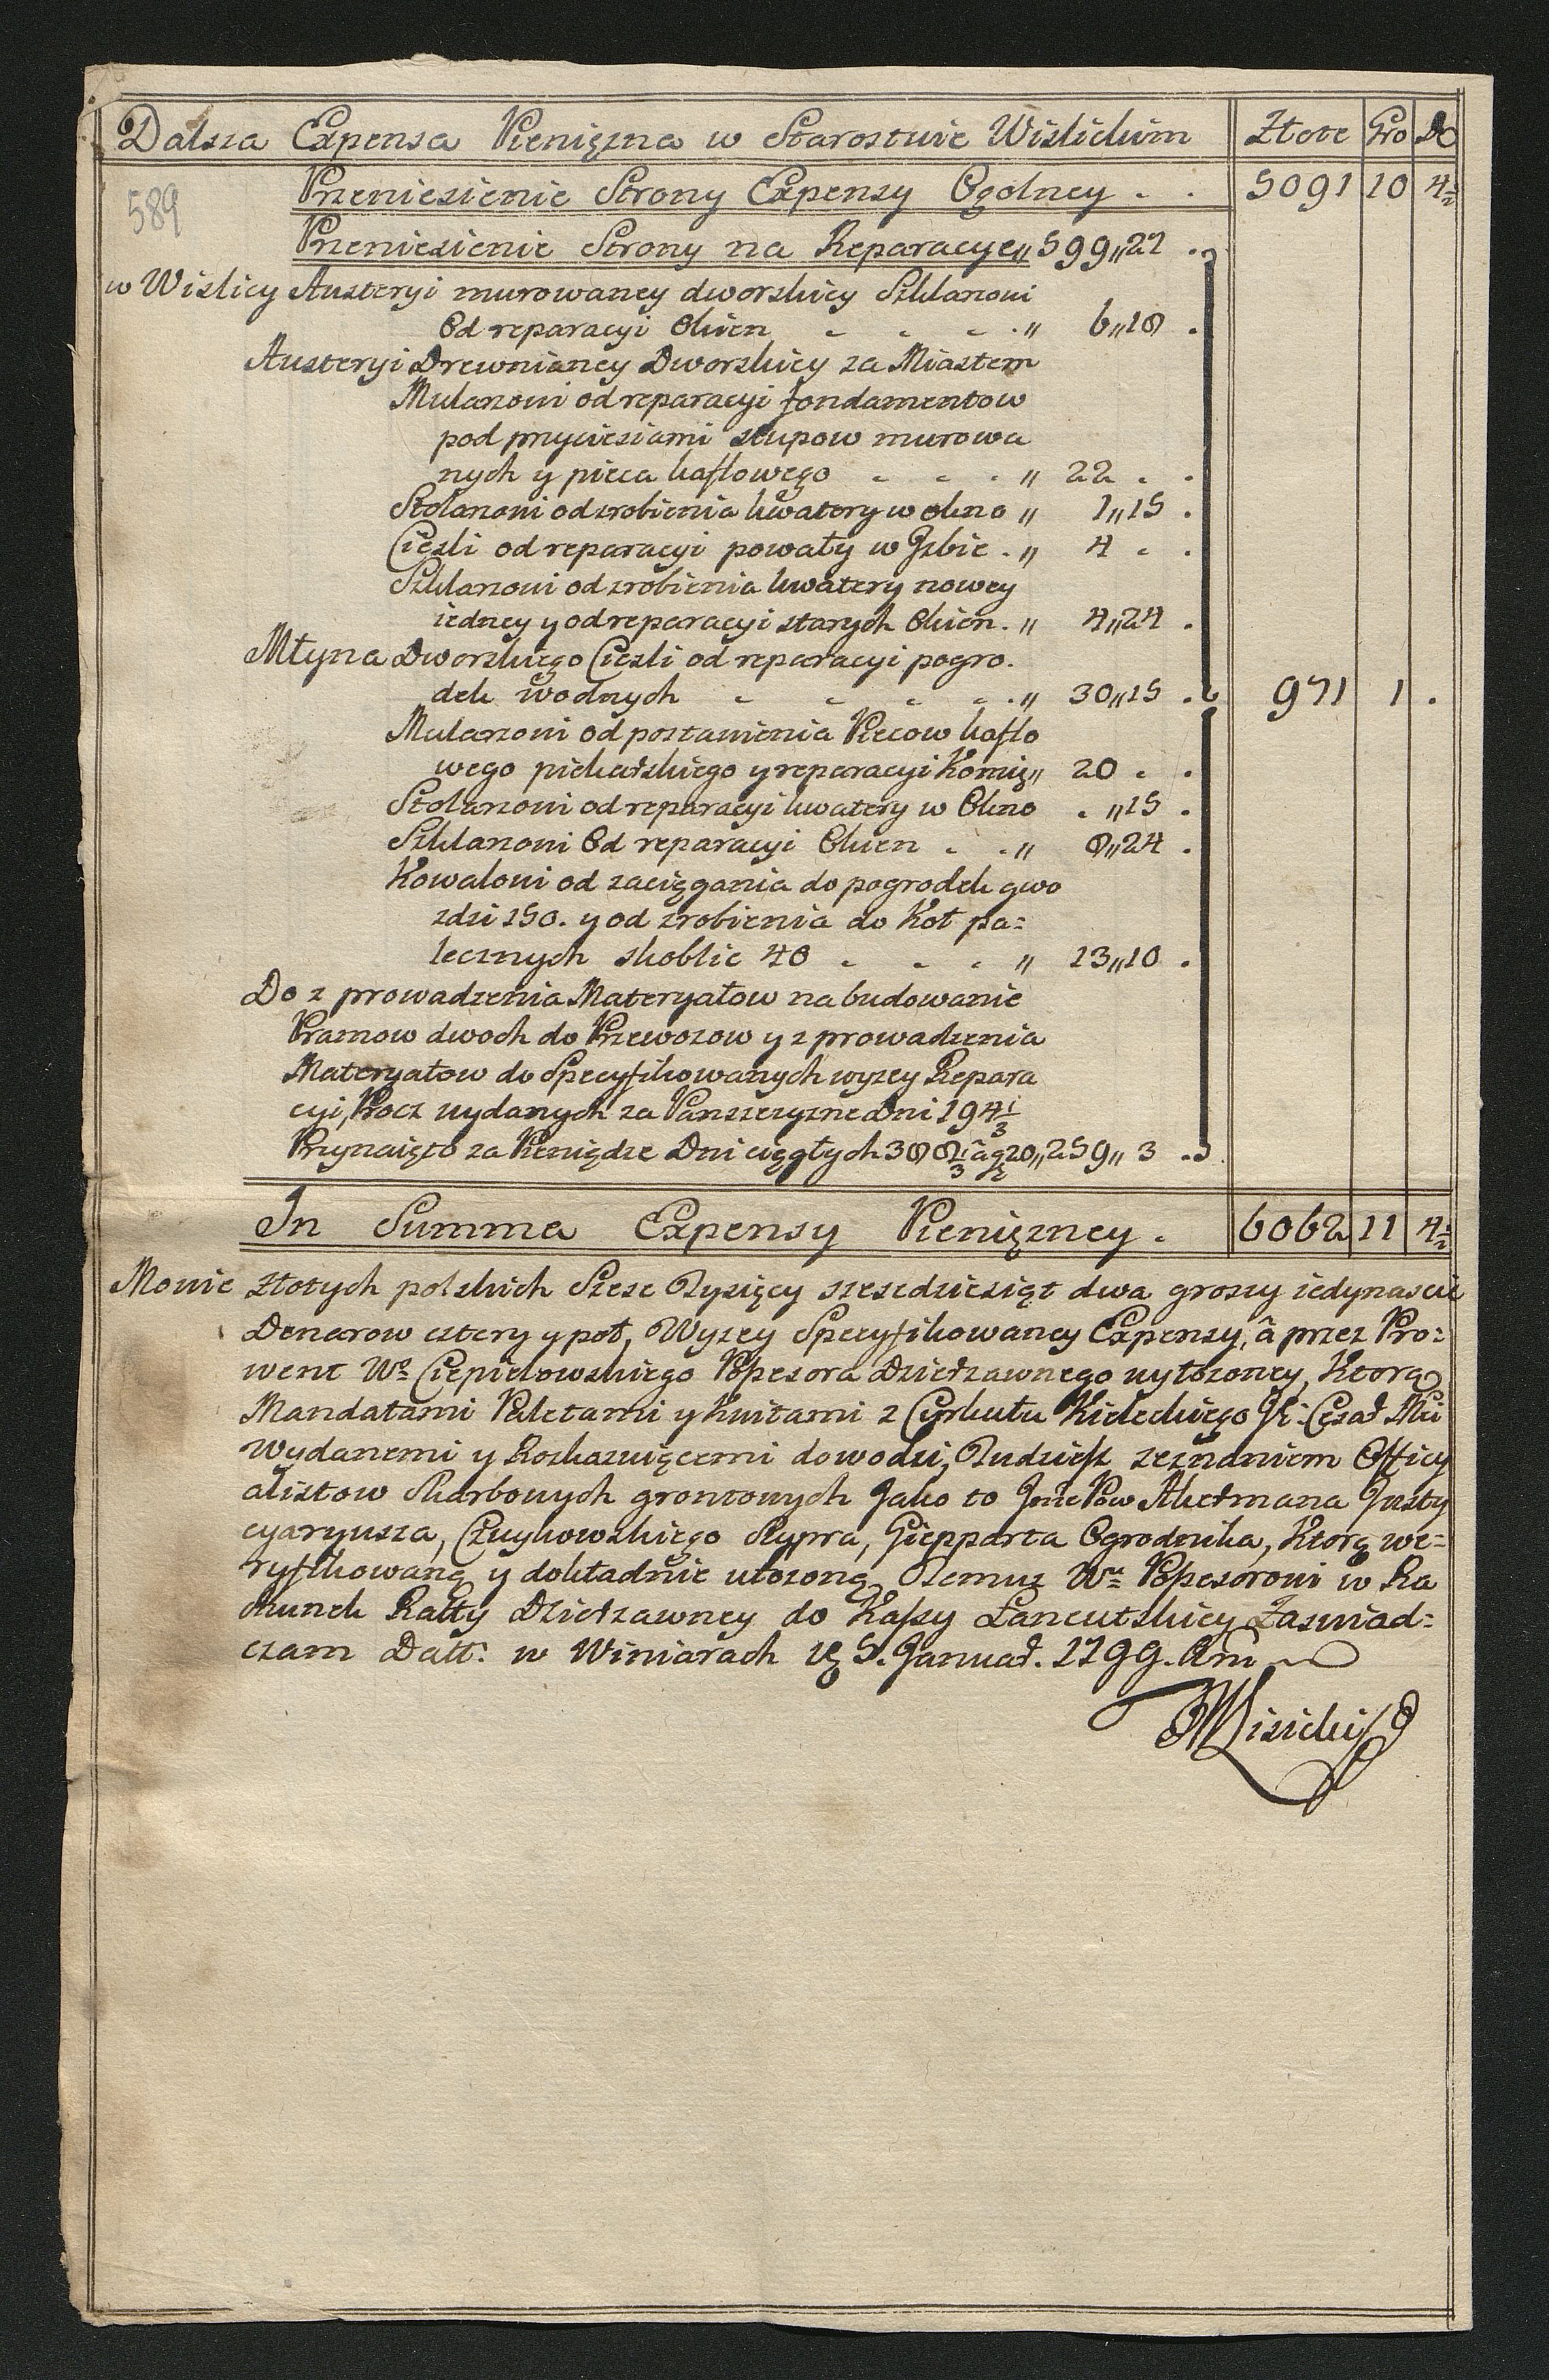 Dalsza Expensa Pieniężna w Starostwie Wislickim Złote Gro D
589 Przeniesienie Strony Expensy Ogolney . . 5091 10 4½
Przeniesienie Strony na Reparacye „ 599„27 .
w Wislicy Austeryi murowaney dworskiey Szklarzowi
Od reparacyi Okien . . . . „ 6„18 .
Austeryi Drewnianey Dworskiey za Miastem
Mularzowi od reparacyi fondamentow
pod przyciesiami słupow murowa
nych y pieca kaflowego . . . „ 22 . .
Stolarzowi od zrobienia kwatery w okno „ 1„15 .
Cieśli od reparacyi powały w Jzbie . „ 4 . .
Szklarzowi od zrobienia kwatery nowey
iedney y od reparacyi starych Okien . „ 4„24 .
Młyna Dworskiego Cieśli od reparacyi pogro.
dek wodnych . . . . „ 30„15 . 971 1 .
Mularzowi od postawienia Piecow kaflo
wego piekarskiego y reparacyi Komię„ 20 . .
Stolarzowi od reparacyi kwatery w Okno . „15 .
Szklarzowi Od reparacyi Okien . . „ 8„24 .
Kowalowi od zaciągania do pogrodek gwo
zdzi 150. y od zrobienia do Koł pa=
lecznych skoblic 40 . . . „ 13„10 .
Do z prowadzenia Materyałow na budowanie
Pramow dwoch do Przewozow y z prowadzenia
Materyałow do Specyfikowanych wyzey Repara
cyi, Procz wydanych za Panszczyzne Dni 194⅓
Przynaięto za Pieniądze Dni ciągłych 388⅓ â g 20„259„ 3 .
In Summa Expensy Pieniężney . 6062 11 4½
Mowie złotych polskich Szesc Tysięcy szescdziesiąt dwa groszy iedynascie
Denarow cztery y poł, Wyzey Specyfikowaney Expensy, â przez Pro=
went We Ciepielowskiego Possesora Dzierzawnego wyłozoney, Ktorą
Mandatami Paletami y Kwitami z Cyrkułu Kieleckiego Cesar
Wydanemi y Roskazuięcemi dowodzi, Tudziesz zeznaniem Officy
alistow Skarbowych grontowych Jako to Akermana Justy
cyaryusza, Czuykowskiego Skypra, Giepparta Ogrodnika, Ktorą we=
ryfikowaną y dokładnie ułozoną Temuz Wu Possesorowi w Ra
chunek Ratty Dzierzawney do Kassy Łancutskiey Zaswiad=
czam Datt: w Winiarach 5. Januar. 1799. Ani